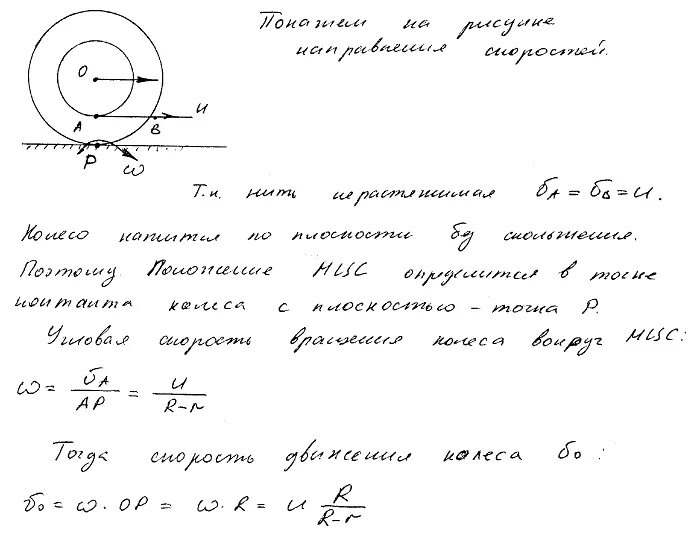 Покажем на рисунке
направления скоростей.
O
A
B
u
P
ω
Т.к. нить нерастяжимая υA = υB = u.
Колесо катится по плоскости без скольжения.
Поэтому положение МЦС определится в точке
контакта колеса с плоскостью – точка P.
Угловая скорость вращения колеса вокруг МЦС:
ω = υA / AP = u / (R-r)
Тогда скорость движения колеса υ₀:
υ₀ = ω · OP = ω · R = u R / (R-r)